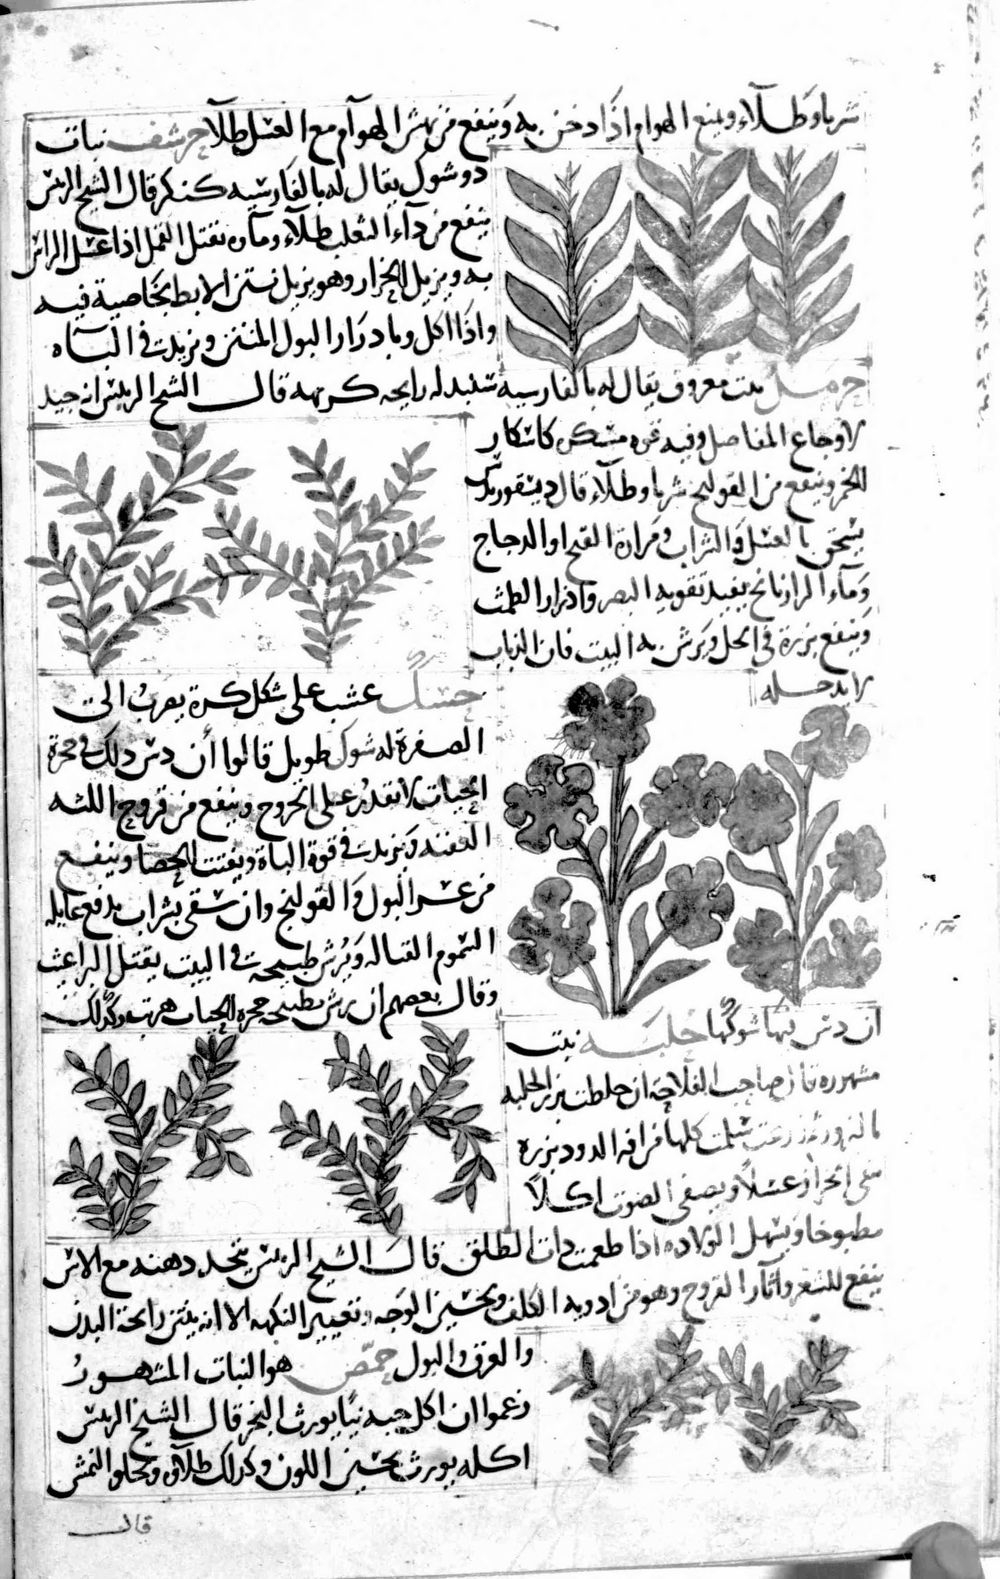 شربا وطلآء ويمنع الهوام اذا دخن به وينفع من نهش الهوآم مع العسل طلآ حرشف نبات
ذو شوك يقال له بالفارسية كنكر قال الشيخ الريس
ينفع من دآء الثعلب طلآء ومآه يقتل القمل اذا غسل الراس
به ويزيل الحزاز وهو يزيل نتن الابط بخاصية فيه
واذا اكل وبادرار البول المنتن ويزيد في الباه
حرمل نبت معروف يقال له بالفارسية سنبد له رايحه كريهه قال الشيخ الريس انه جيد
لاوجاع المفاصل وفيه قوه مسكره كاسكار
الخمر وينفع من القولنج شربا وطلآء قال ديسقوريدس
يسحق بالعسل والشراب ومرارة القبج او الدجاج
ومآء الرازيانج يفيد تقوية البصر وادرار الطمث
وينفع بزره في الخل ويرش به البيت فان الذباب
لا يدخله
حسك عشب على شكل كرة يضرب الى
الصفرة له شوك طويل قالوا أن دس ذلك في جحرة
الحيات لا تقدر على الخروج وينفع من قروح اللثه
العفنه ويزيد في قوة الباة ويفتت الحصا وينفع
من عسر البول والقولنج وان سقى بشراب يدفع غايله
السموم القتاله ويرش طبيخه في البيت يقتل البراغيث
وقال بعضهم ان رش بطبيخه جحره الحيات هربت وكذلك
ان دس فيها شوكها حلبة نبت
مشهوره قال صاحب الفلاحة ان خلطت بزر الحلبه
بالبزور زرعت سلمت كلها من افه الدود بزره
مطبوخا ويسهل الولاده اذا طعمت ذات الطلق قال الشيخ الريس يتخذ دهنه مع الاس
ينفع للشعر واثار القروح وهو من ادويه الكلف وتحسين الوجه وتغيير النكهه الا انه ينتن رائحة البدن
والعرق والبول حمص هو النبات المشهور
زعموا ان اكل حبه نيا يورث البخر قال الشيخ الريس
اكله يورث تحسين اللون وكذلك طلآؤه ويجلو النمش
قال